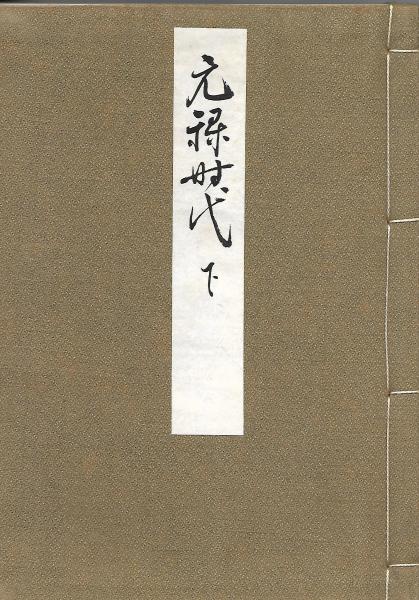 元禄时代 下